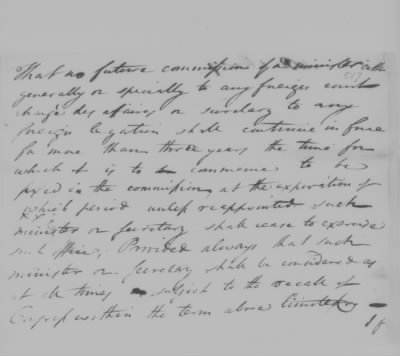 That no future commissions of a minister either
generally or specially to any foreign court
chargé des affairs or secretary to any
foreign legation shall continue in force
for more than three years the time for
which it is to commence to be
fixed in the commission, at the expiration of
which period unless reappointed such
minister or Secretary shall cease to exercise
such office; Provided always that such
minister or Secretary shall be considered as
at all times subject to the recall of
Congress within the term above limited